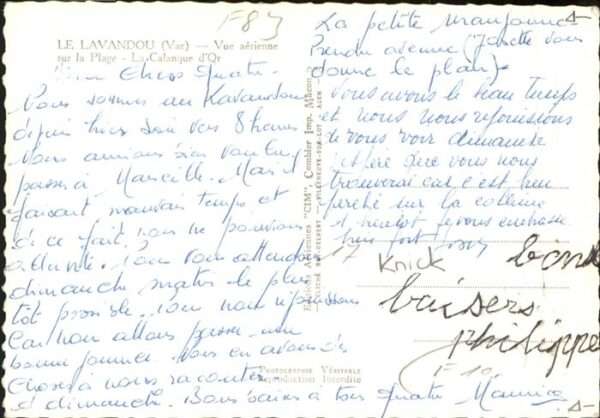 F 83
LE LAVANDOU (Var) — Vue aérienne
sur la Plage - La Calanque d'Or
Chers quatre.
Nous sommes au Lavandou
depuis hier soir vers 8 heures
Nous aurions bien voulu
passer à Marseille. Mais
faisait mauvais temps et
de ce fait, nous ne pouvions
vous attendons
dimanche matin le plus
tôt possible. nous nous réjouissons
Car nous allons passer une
bonne journée. Nous en avons des
choses à nous raconter
à dimanche. Bons baisers à tous quatre Maurice
La petite maisonnette
avenue (Josette vous
donne le plan)
Nous avons le beau temps
et nous nous réjouissons
de vous voir dimanche
j'espère que vous nous
trouverai car c'est bien
perché sur la colline
A bientôt je vous embrasse
bien fort
Knick
bons
baisers
philippe
F 10
Editions Aériennes "CIM", Combier Imp. Mâcon
PHOTOGRAPHIE VÉRITABLE
Reproduction Interdite